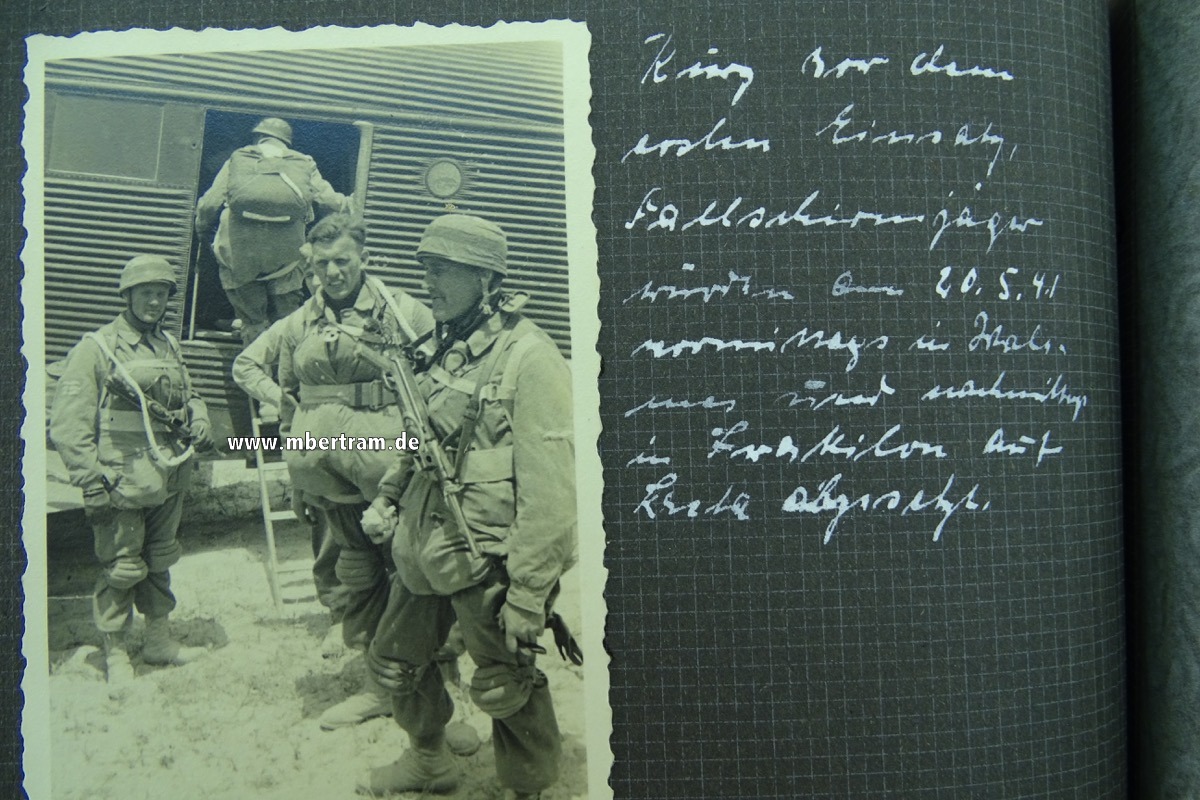 Kurz vor dem
ersten Einsatz,
Fallschirmjäger
würden am 20.5.41
vormittags in Male-
mes und nachmittags
in Irakilon auf
Kreta abgesetzt.
www.mbertram.de